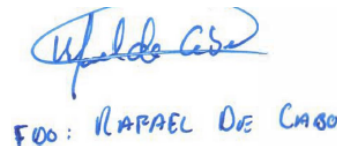 FDO: RAFAEL DE CABO